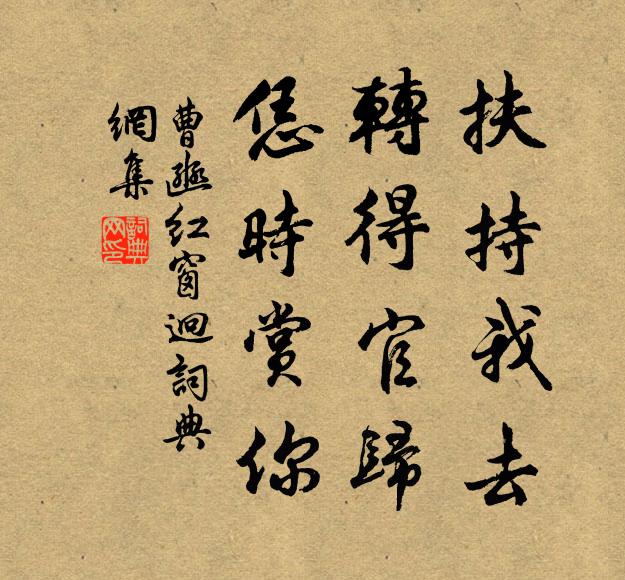 扶持我去
轉得官歸
恁時賞你
曹豳紅窗迥詞典
網集
詞典
网印